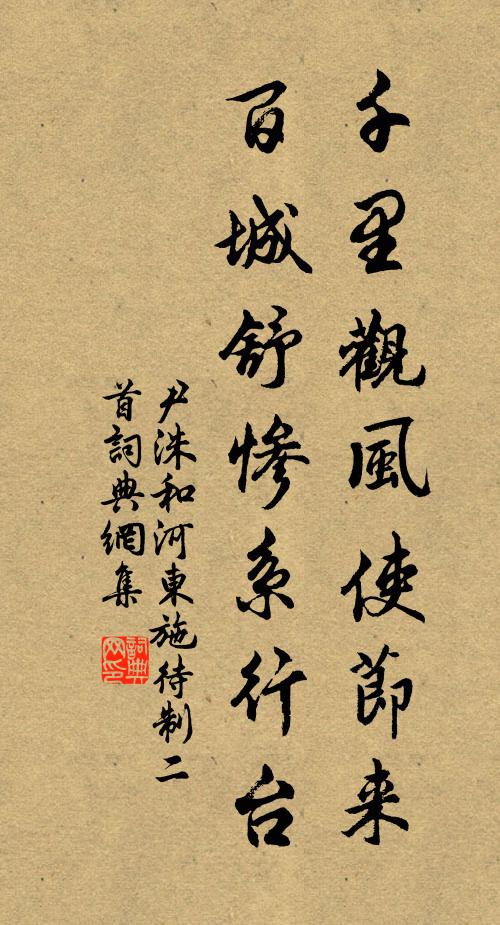 千里觀風使節来
百城舒慘系行台
尹洙和河東施待制二
首詞典網集
詞典
网印